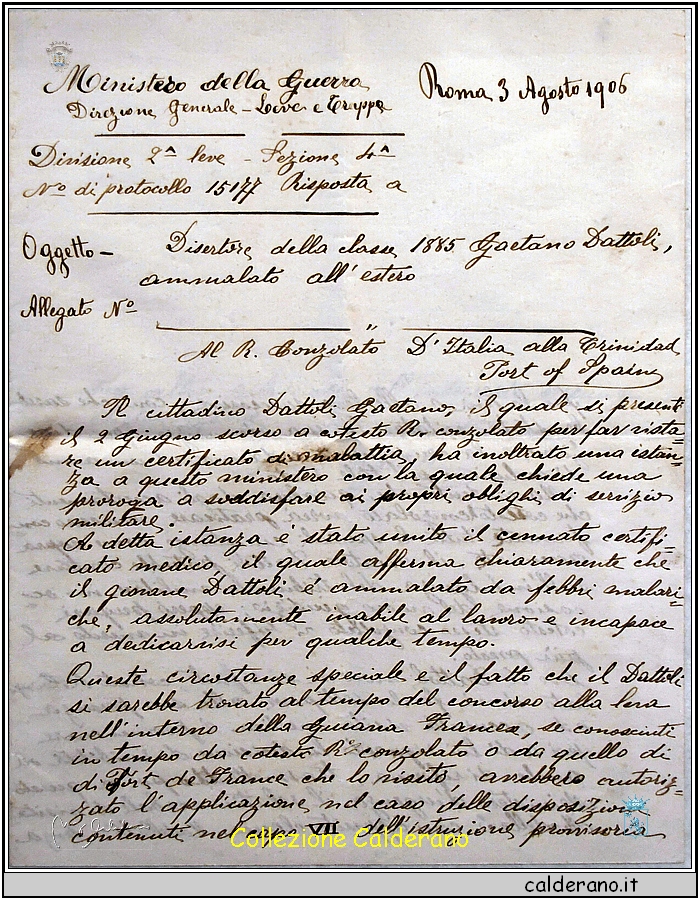 Ministero della Guerra
Roma 3 Agosto 1906
Direzione Generale - Leve e Truppe
Divisione 2ª leve - Sezione 4ª
Nº di protocollo 15177 Risposta a
Oggetto - Disertore della classe 1885 Gaetano Dattoli,
ammalato all'estero
Allegato Nº
"
Al R. Conzolato D'Italia alla Trinidad
Port of Spain
Il cittadino Dattoli Gaetano, il quale si presentò
il 2 giugno scorso a cotesto R. conzolato per far vista-
re un certificato di malattia, ha inoltrato una istan-
za a questo ministero con la quale chiede una
proroga a soddisfare ai propri oblighi di servizio
militare.
A detta istanza é stato unito il cennato certifi-
cato medico, il quale afferma chiaramente che
il giovane Dattoli é ammalato da febbri malari-
che, assolutamente inabile al lavoro e incapace
a dedicarvisi per qualche tempo.
Queste circostanze speciale e il fatto che il Dattoli
si sarebbe trovato al tempo del concorso alla leva
nell'interno della Guiana Francese, se conosciuti
in tempo da cotesto R. conzolato o da quello di
di Fort de France che lo visitò, avrebbero autoriz-
zato l'applicazione nel caso delle disposizioni
contenute nel VII dell'istruzione provvisoria
Collezione Calderano
calderano.it